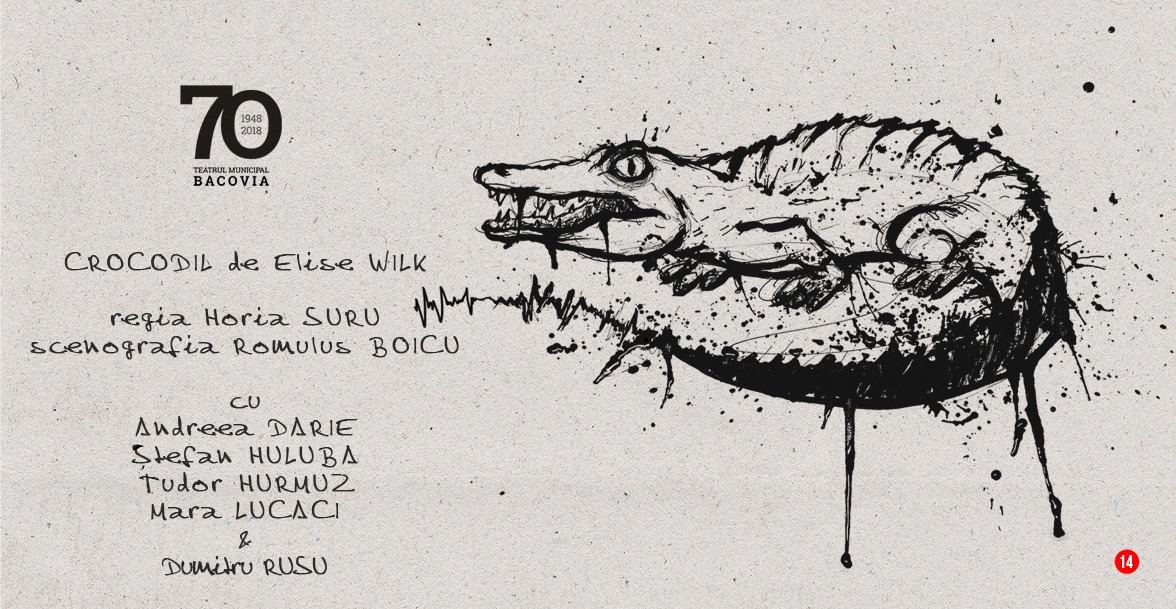 70
1948
2018
TEATRUL MUNICIPAL
BACOVIA
CROCODIL de Elise WILK
regia Horia SURU
scenografia Romulus BOICU
cu
Andreea DARIE
Ștefan HULUBA
Tudor HURMUZ
Mara LUCACI
&
Dumitru RUSU
14